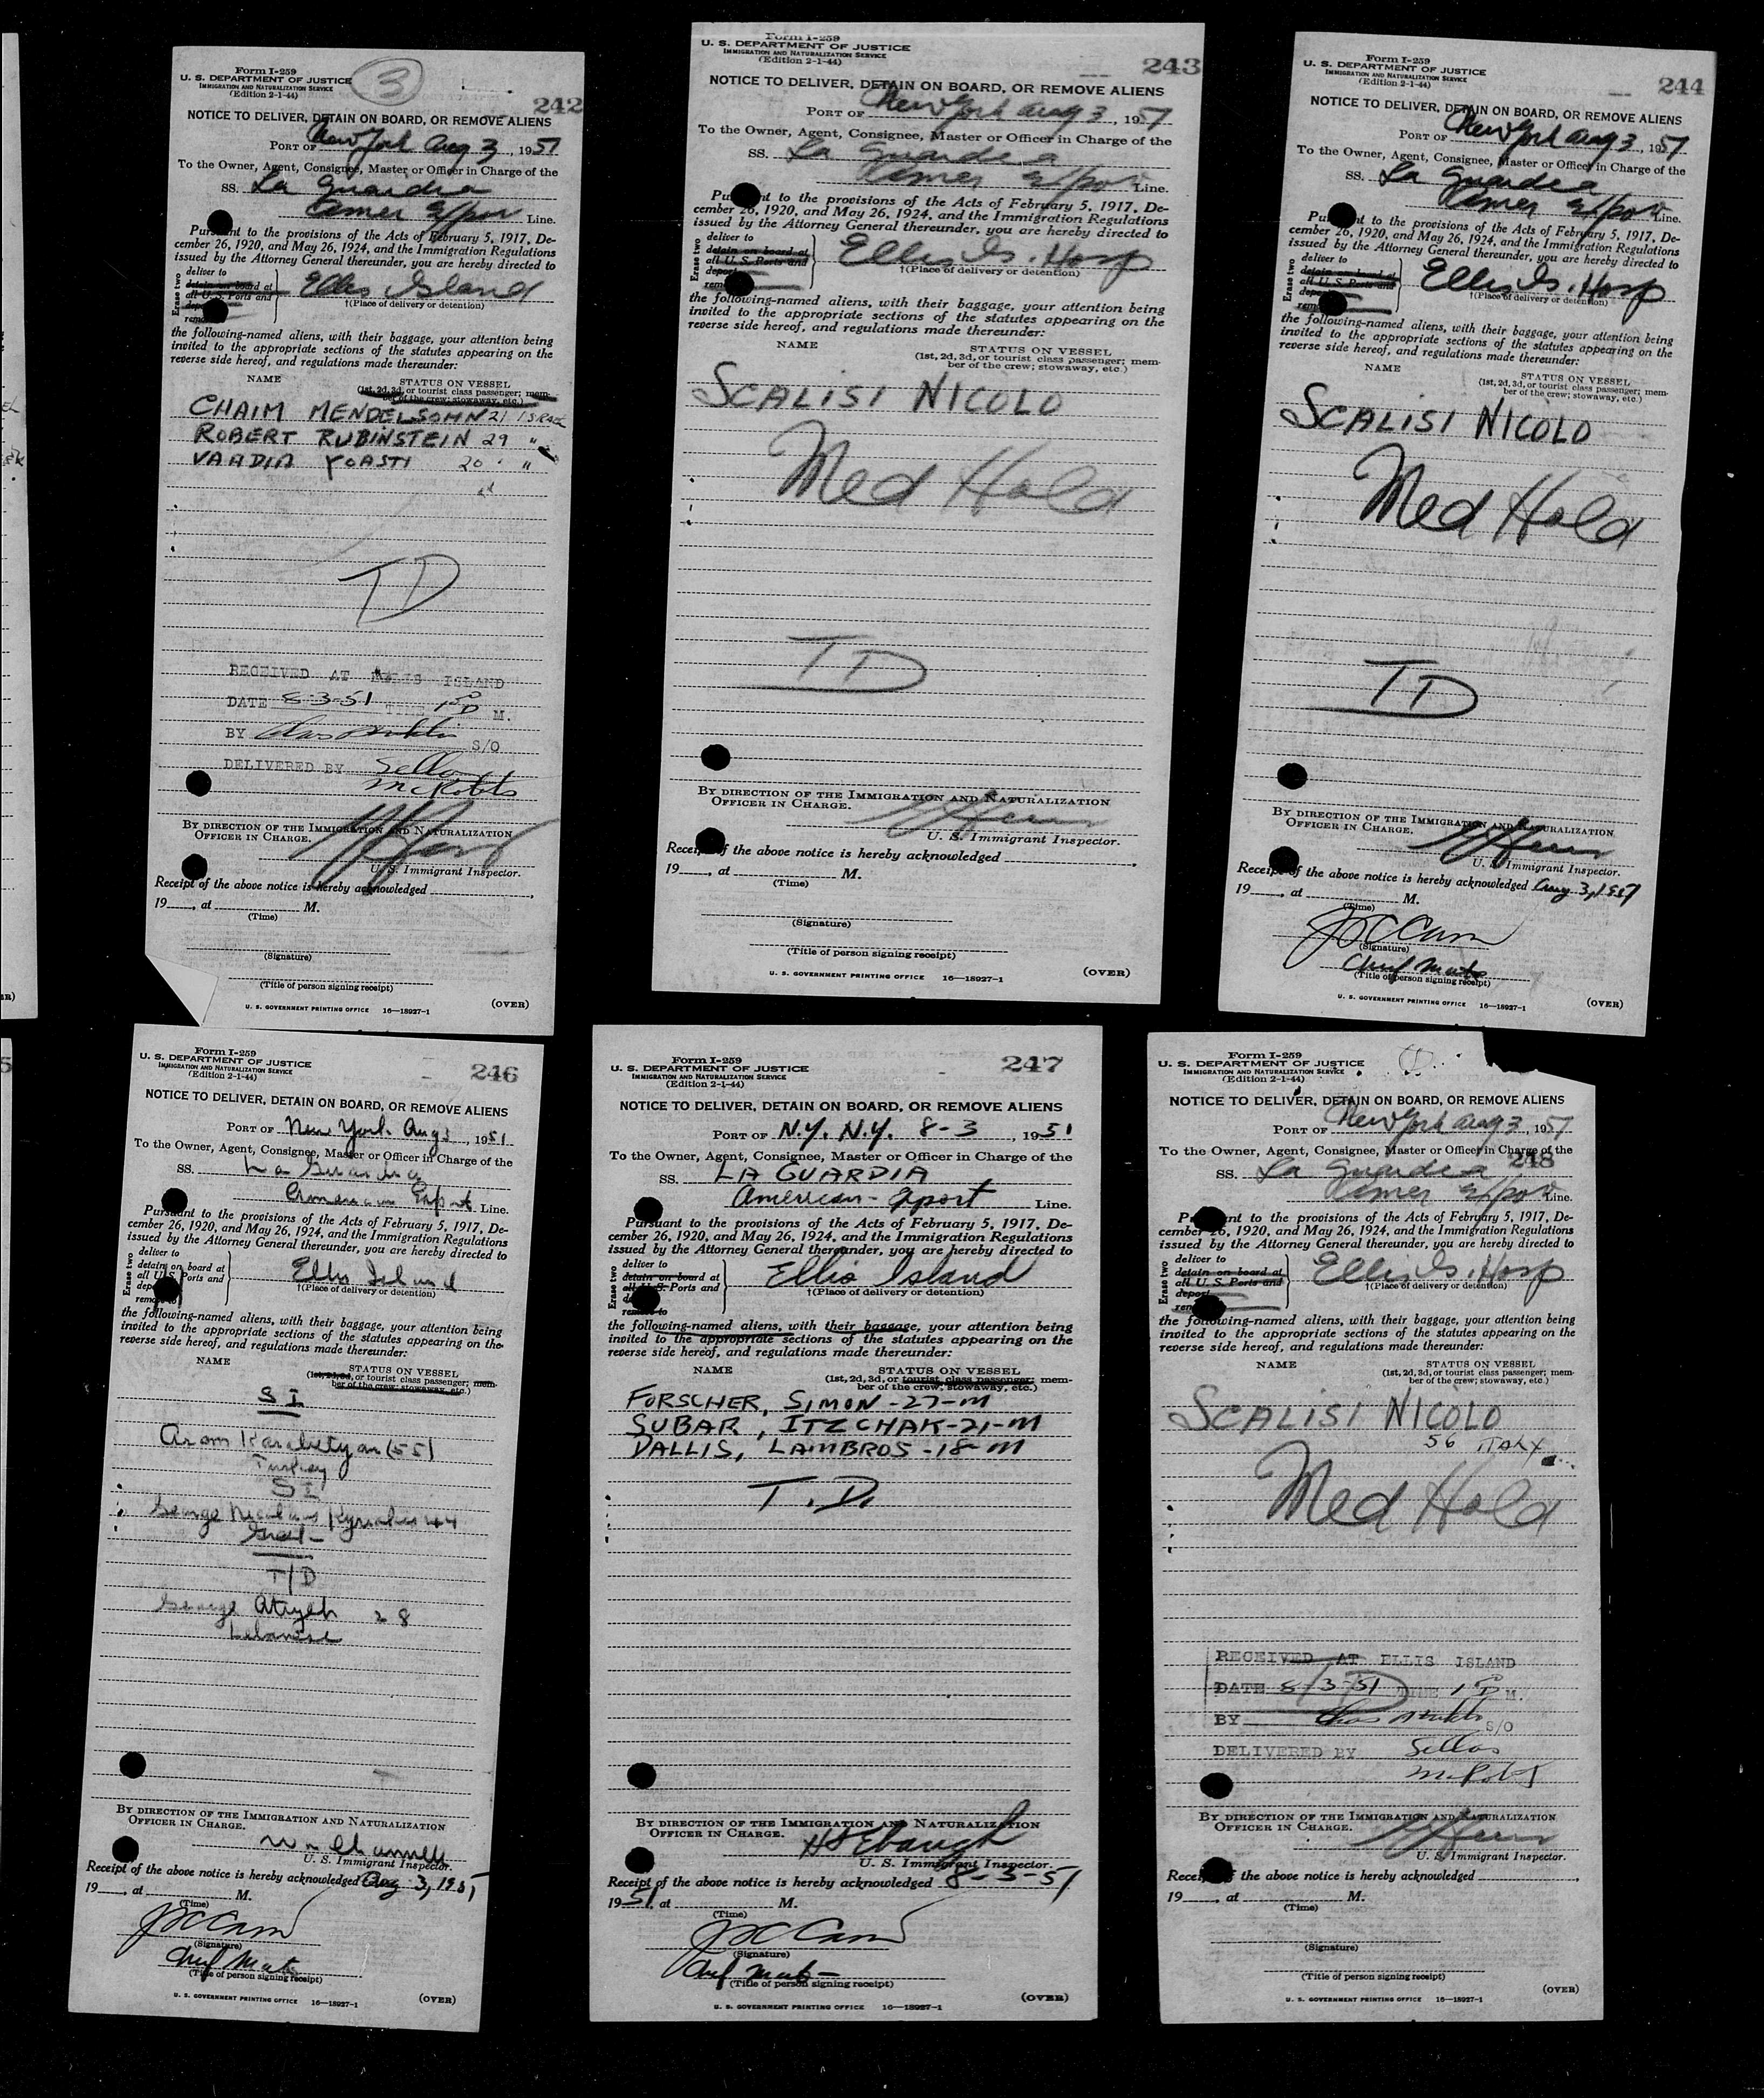 Form I-259
U. S. DEPARTMENT OF JUSTICE
IMMIGRATION AND NATURALIZATION SERVICE
(Edition 2-1-44)
3
242
NOTICE TO DELIVER, DETAIN ON BOARD, OR REMOVE ALIENS
PORT OF New York Aug 3, 1951
To the Owner, Agent, Consignee, Master or Officer in Charge of the
SS. La Guardia
Amer Expor Line.
Pursuant to the provisions of the Acts of February 5, 1917, De-
cember 26, 1920, and May 26, 1924, and the Immigration Regulations
issued by the Attorney General thereunder, you are hereby directed to
Erase two
deliver to
detain on board at
all U. S. Ports and
Ellis Island
†(Place of delivery or detention)
the following-named aliens, with their baggage, your attention being
invited to the appropriate sections of the statutes appearing on the
reverse side hereof, and regulations made thereunder:
NAME STATUS ON VESSEL
(1st, 2d, 3d, or tourist class passenger; mem-
ber of the crew; stowaway, etc.)
CHAIM MENDELSOHN 21 ISRAEL
ROBERT RUBINSTEIN 29 "
VAADIA YOASTI 20 "
TD
RECEIVED AT ELLIS ISLAND
DATE 8-3-51 M.
BY S/O
DELIVERED BY Sellas
McRobts
BY DIRECTION OF THE IMMIGRATION AND NATURALIZATION
OFFICER IN CHARGE.
U. S. Immigrant Inspector.
Receipt of the above notice is hereby acknowledged
19 , at M.
(Time)
(Signature)
(Title of person signing receipt)
U. S. GOVERNMENT PRINTING OFFICE 16—18927-1 (OVER)
Form I-259
U. S. DEPARTMENT OF JUSTICE
IMMIGRATION AND NATURALIZATION SERVICE
(Edition 2-1-44)
243
NOTICE TO DELIVER, DETAIN ON BOARD, OR REMOVE ALIENS
PORT OF New York Aug 3, 1951
To the Owner, Agent, Consignee, Master or Officer in Charge of the
SS. La Guardia
Amer Expor Line.
Pursuant to the provisions of the Acts of February 5, 1917, De-
cember 26, 1920, and May 26, 1924, and the Immigration Regulations
issued by the Attorney General thereunder, you are hereby directed to
Erase two
deliver to
detain on board at
all U. S. Ports and
deport
Ellis Is. Hosp
†(Place of delivery or detention)
the following-named aliens, with their baggage, your attention being
invited to the appropriate sections of the statutes appearing on the
reverse side hereof, and regulations made thereunder:
NAME STATUS ON VESSEL
(1st, 2d, 3d, or tourist class passenger; mem-
ber of the crew; stowaway, etc.)
SCALISI NICOLO
Med Hold
TD
BY DIRECTION OF THE IMMIGRATION AND NATURALIZATION
OFFICER IN CHARGE.
U. S. Immigrant Inspector.
Receipt of the above notice is hereby acknowledged
19 , at M.
(Time)
(Signature)
(Title of person signing receipt)
U. S. GOVERNMENT PRINTING OFFICE 16—18927-1 (OVER)
Form I-259
U. S. DEPARTMENT OF JUSTICE
IMMIGRATION AND NATURALIZATION SERVICE
(Edition 2-1-44)
244
NOTICE TO DELIVER, DETAIN ON BOARD, OR REMOVE ALIENS
PORT OF New York Aug 3, 1951
To the Owner, Agent, Consignee, Master or Officer in Charge of the
SS. La Guardia
Amer Expor Line.
Pursuant to the provisions of the Acts of February 5, 1917, De-
cember 26, 1920, and May 26, 1924, and the Immigration Regulations
issued by the Attorney General thereunder, you are hereby directed to
Erase two
deliver to
detain on board at
all U. S. Ports and
Ellis Is. Hosp
†(Place of delivery or detention)
the following-named aliens, with their baggage, your attention being
invited to the appropriate sections of the statutes appearing on the
reverse side hereof, and regulations made thereunder:
NAME STATUS ON VESSEL
(1st, 2d, 3d, or tourist class passenger; mem-
ber of the crew; stowaway, etc.)
SCALISI NICOLO
Med Hold
TD
BY DIRECTION OF THE IMMIGRATION AND NATURALIZATION
OFFICER IN CHARGE.
U. S. Immigrant Inspector.
Receipt of the above notice is hereby acknowledged Aug 3, 1951
19 , at M.
(Time)
(Signature)
Chief Mate
(Title of person signing receipt)
U. S. GOVERNMENT PRINTING OFFICE 16—18927-1 (OVER)
Form I-259
U. S. DEPARTMENT OF JUSTICE
IMMIGRATION AND NATURALIZATION SERVICE
(Edition 2-1-44)
246
NOTICE TO DELIVER, DETAIN ON BOARD, OR REMOVE ALIENS
PORT OF New York Aug 3, 1951
To the Owner, Agent, Consignee, Master or Officer in Charge of the
SS. La Guardia
American Export Line.
Pursuant to the provisions of the Acts of February 5, 1917, De-
cember 26, 1920, and May 26, 1924, and the Immigration Regulations
issued by the Attorney General thereunder, you are hereby directed to
Erase two
deliver to
detain on board at
all U.S. Ports and
Ellis Island
†(Place of delivery or detention)
the following-named aliens, with their baggage, your attention being
invited to the appropriate sections of the statutes appearing on the
reverse side hereof, and regulations made thereunder:
NAME STATUS ON VESSEL
(1st, 2d, 3d, or tourist class passenger; mem-
ber of the crew; stowaway, etc.)
S I
Aram Karabetyan (55)
Turkey
S I
George Nicolaus 44
Greek
T/D
George Atiyeh 28
Lebanese
BY DIRECTION OF THE IMMIGRATION AND NATURALIZATION
OFFICER IN CHARGE.
U. S. Immigrant Inspector.
Receipt of the above notice is hereby acknowledged Aug 3, 1951
19 , at M.
(Time)
(Signature)
Chief Mate
(Title of person signing receipt)
U. S. GOVERNMENT PRINTING OFFICE 16—18927-1 (OVER)
Form I-259
U. S. DEPARTMENT OF JUSTICE
IMMIGRATION AND NATURALIZATION SERVICE
(Edition 2-1-44)
247
NOTICE TO DELIVER, DETAIN ON BOARD, OR REMOVE ALIENS
PORT OF N.Y. N.Y. 8-3, 1951
To the Owner, Agent, Consignee, Master or Officer in Charge of the
SS. LA GUARDIA
American-Export Line.
Pursuant to the provisions of the Acts of February 5, 1917, De-
cember 26, 1920, and May 26, 1924, and the Immigration Regulations
issued by the Attorney General thereunder, you are hereby directed to
Erase two
deliver to
detain on board at
all U.S. Ports and
remove to
Ellis Island
†(Place of delivery or detention)
the following-named aliens, with their baggage, your attention being
invited to the appropriate sections of the statutes appearing on the
reverse side hereof, and regulations made thereunder:
NAME STATUS ON VESSEL
(1st, 2d, 3d, or tourist class passenger; mem-
ber of the crew; stowaway, etc.)
FORSCHER, SIMON -27-M
SUBAR, ITZCHAK-21-M
DALLIS, LAMBROS -18-M
T.D.
BY DIRECTION OF THE IMMIGRATION AND NATURALIZATION
OFFICER IN CHARGE. HS Ebaugh
U. S. Immigrant Inspector.
Receipt of the above notice is hereby acknowledged 8-3-51
1951, at M.
(Time)
(Signature)
Chief Mate
(Title of person signing receipt)
U. S. GOVERNMENT PRINTING OFFICE 16—18927-1 (OVER)
Form I-259
U. S. DEPARTMENT OF JUSTICE
IMMIGRATION AND NATURALIZATION SERVICE
(Edition 2-1-44)
NOTICE TO DELIVER, DETAIN ON BOARD, OR REMOVE ALIENS
PORT OF New York Aug 3, 1951
To the Owner, Agent, Consignee, Master or Officer in Charge of the
248
SS. La Guardia
Amer Expor Line.
Pursuant to the provisions of the Acts of February 5, 1917, De-
cember 26, 1920, and May 26, 1924, and the Immigration Regulations
issued by the Attorney General thereunder, you are hereby directed to
Erase two
deliver to
detain on board at
all U. S. Ports and
deport
Ellis Is. Hosp
†(Place of delivery or detention)
the following-named aliens, with their baggage, your attention being
invited to the appropriate sections of the statutes appearing on the
reverse side hereof, and regulations made thereunder:
NAME STATUS ON VESSEL
(1st, 2d, 3d, or tourist class passenger; mem-
ber of the crew; stowaway, etc.)
SCALISI NICOLO
56 ITALY
Med Hold
RECEIVED AT ELLIS ISLAND
DATE 8/3/51 TIME M.
BY S/O
DELIVERED BY Sellas
McRobts
BY DIRECTION OF THE IMMIGRATION AND NATURALIZATION
OFFICER IN CHARGE.
U. S. Immigrant Inspector.
Receipt of the above notice is hereby acknowledged
19 , at M.
(Time)
(Signature)
(Title of person signing receipt)
U. S. GOVERNMENT PRINTING OFFICE 16—18927-1 (OVER)